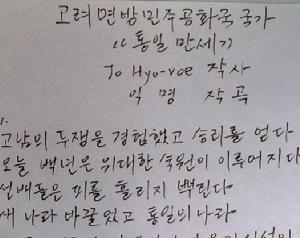 고려연방민주공화국 국가
《통일 만세》
Jo Hyo-voe 작사
익명 작곡
1.
고남의 투쟁을 경험했고 승리를 얻다
오늘 백년은 위대한 숙원이 이루어지다
선배들은 피를 흘리지
새 나라 바꿀 있고 통일의 나라